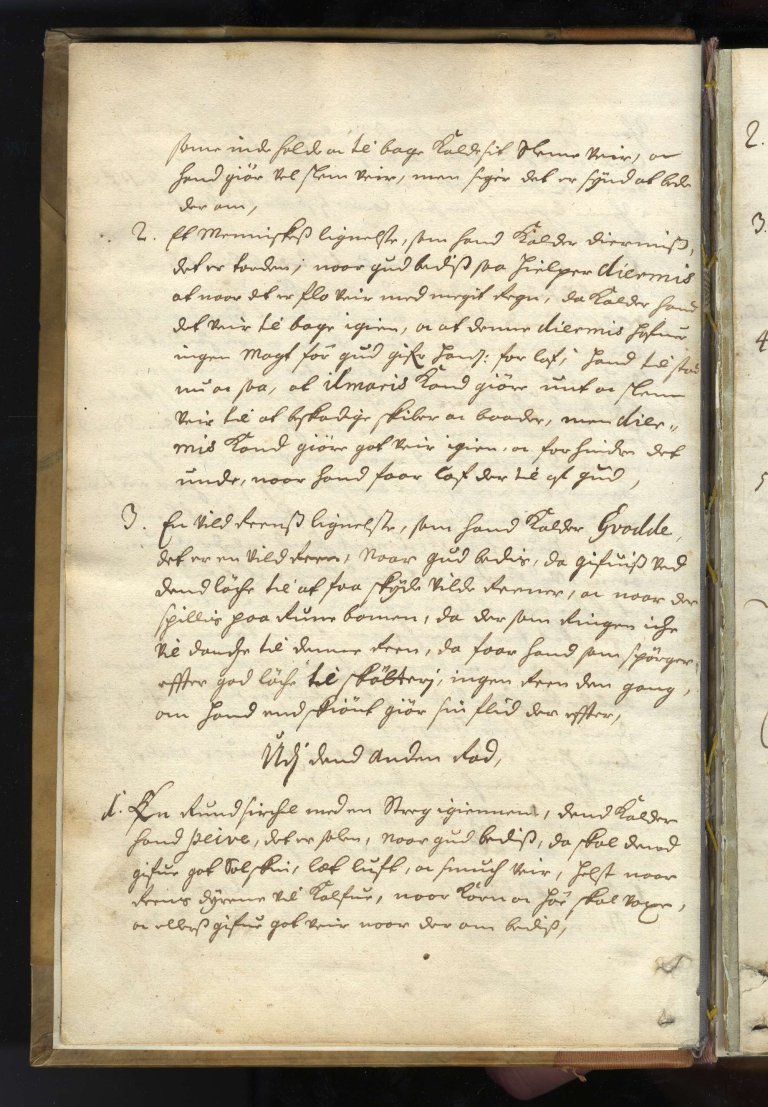 som inde holde oc til bage kalde sit slemme veir, oc
hand giör vel slem veir, men siger det er synd at bede
der om,
2. Et Menniskes lignelse, som hand kalder diermis,
det er torden, naar gud bedis saa hielper diermis
at naar det er flo veir med megit regn, da kalder hand
det veir til bage igien, oc at denne diermis hafuer
ingen magt för gud gifr hans: forlof, hand til staar
nu oc saa, at ilmaris kand giöre unt oc slem
veir til at beskadige skiber oc baader, men dier„
mis kand giöre got veir igien, oc forhindre det
unde, naar hand faar lof der til af gud,
3. En vild reens lignelse, som hand kalder Gvodde,
det er en vild reen, naar gud bedis, da gifuis ved
dend löche til at faa skyde vilde reener, oc naar der
spillis paa Rune bomen, da der som Ringen iche
vil dandse til denne reen, da faar hand som spörger
effter god löche til skötteri, ingen reen den gang,
om hand end skiönt giör sin flid der effter,
Udj dend anden Rad,
1. En Rund circhel med en streg igiennem, dend kalder
hand peive, det er solen, naar gud bedis, da skal dend
gifue got Solskin, let luft, oc smuch veir, helst naar
reens dyrene vil kalfue, naar korn oc höe skal voxe,
oc ellers gifue got veir naar der om bedis,
2.
3.
4
5